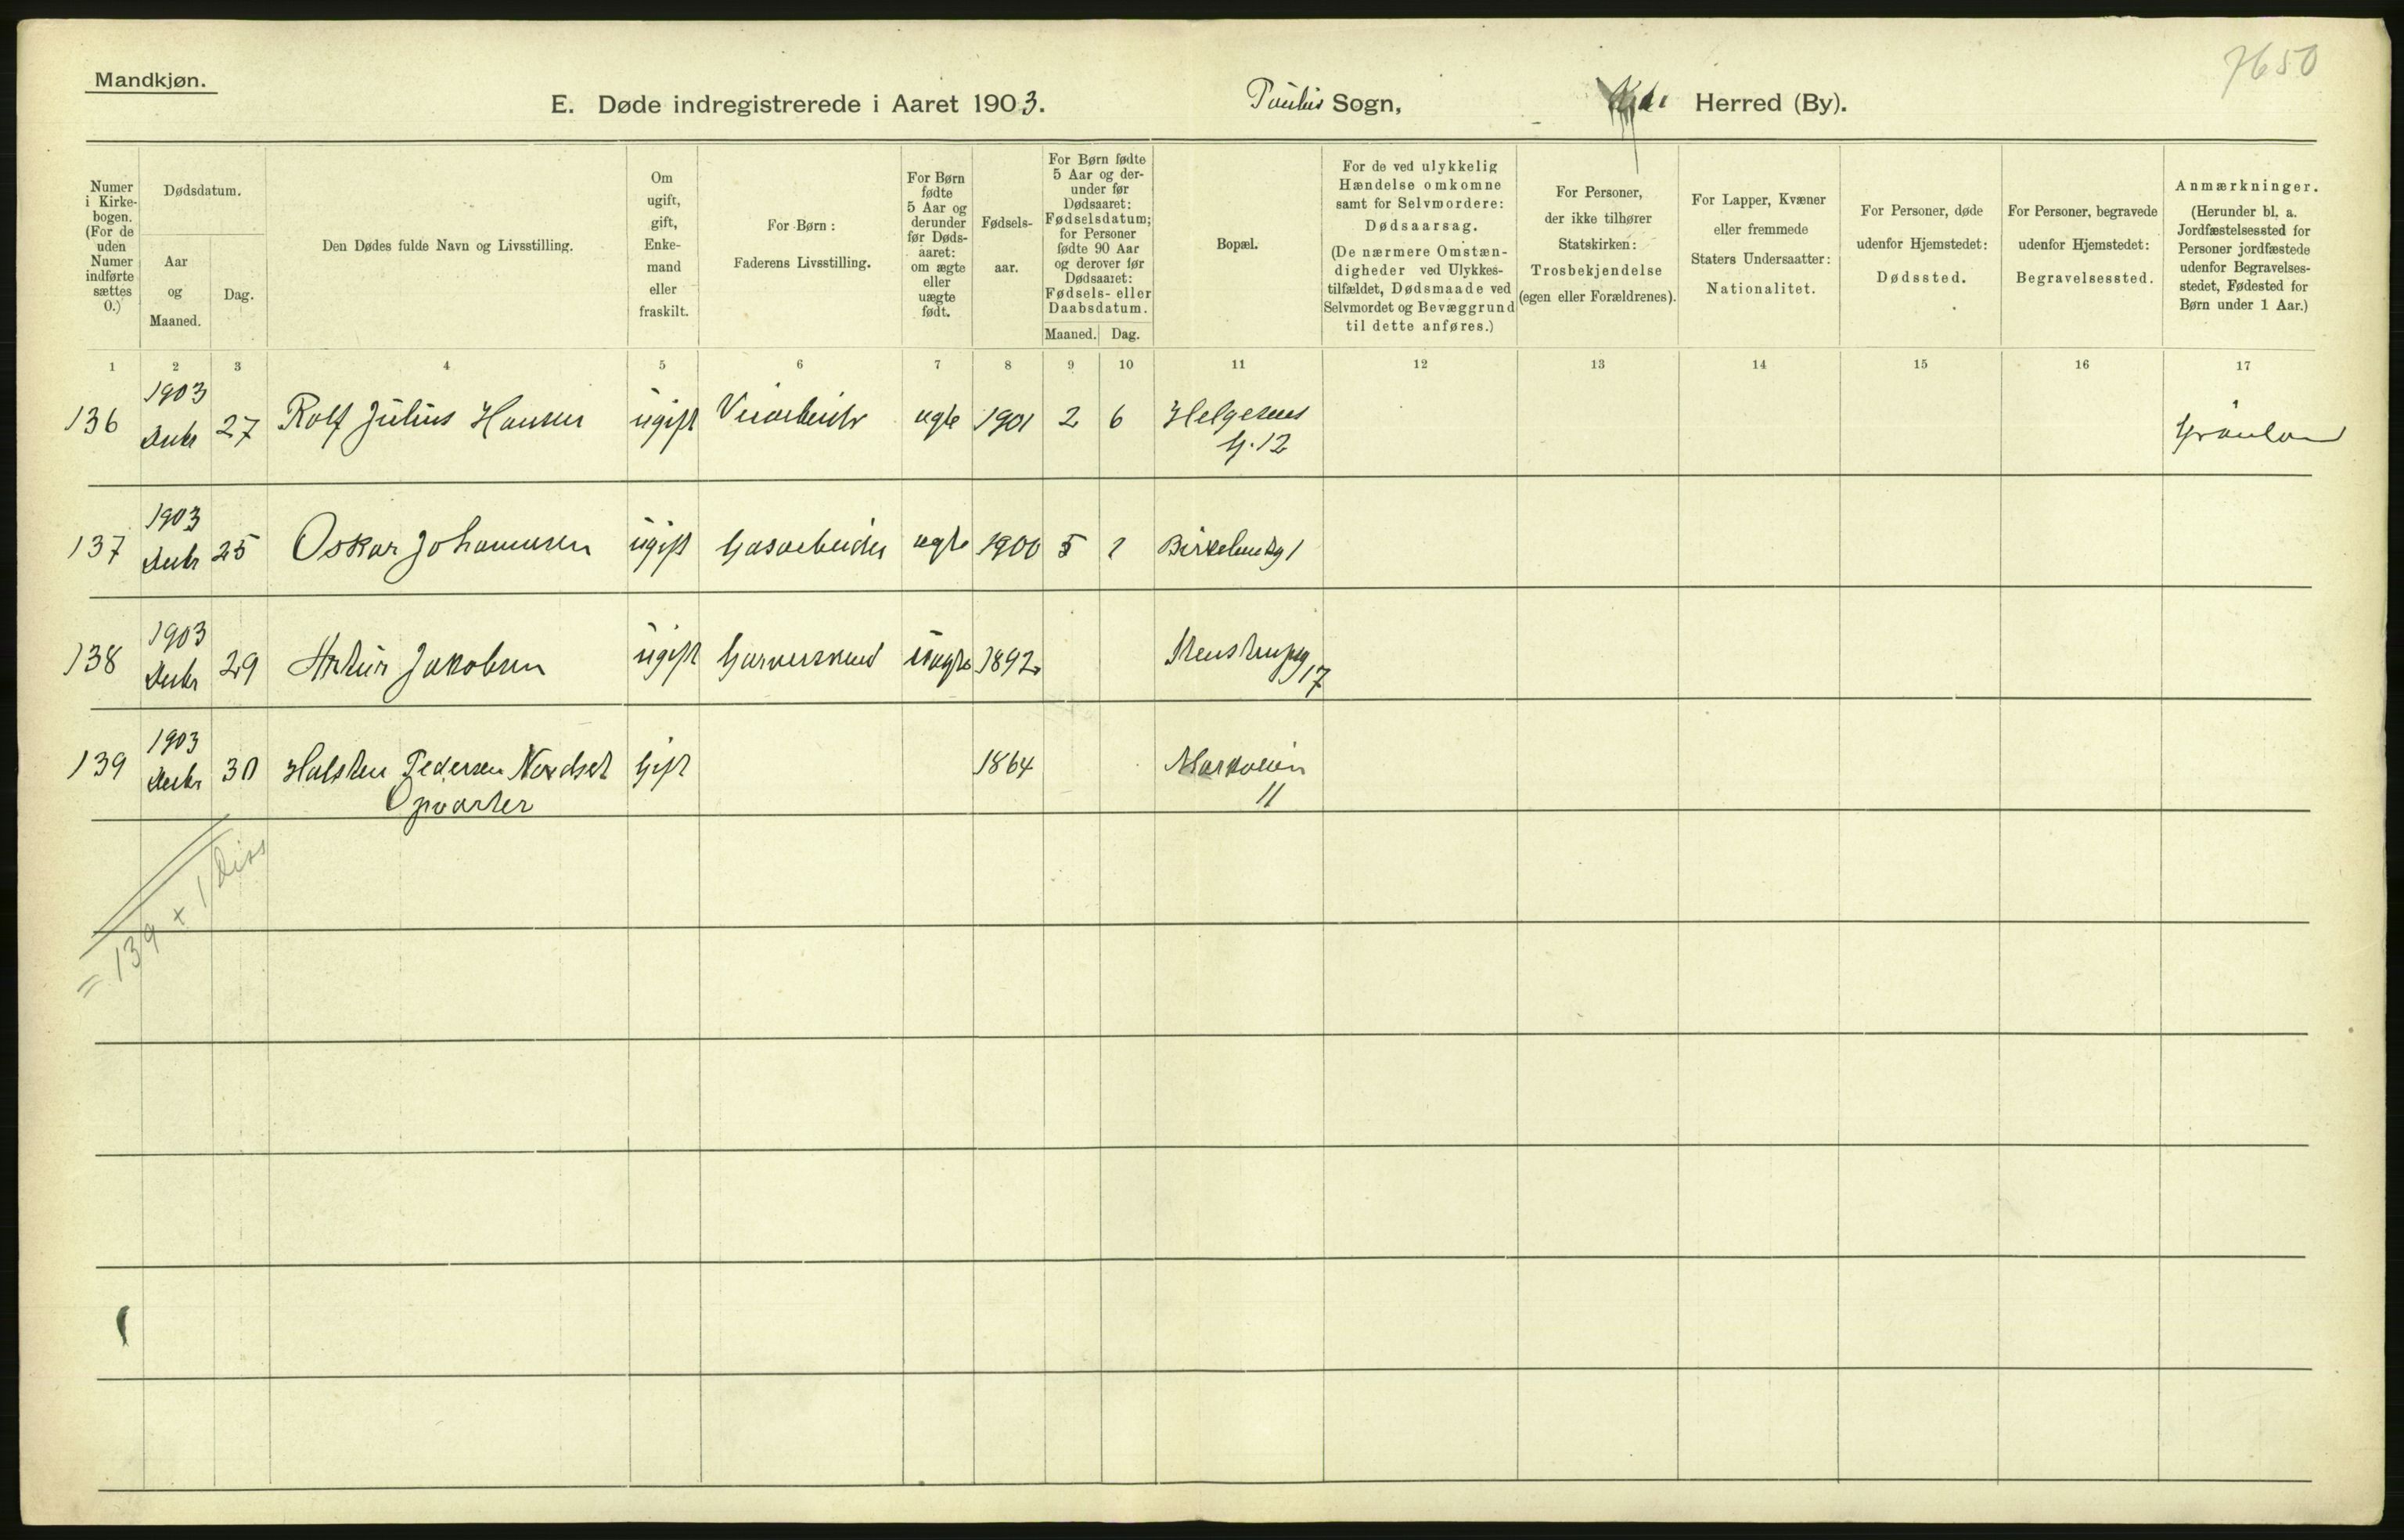 7650
Mandkjøn.
E. Døde indregistrerede i Aaret 1903. Paulus Sogn, Herred (By).
Numer i Kirkebogen. (For de uden Numer indførte sættes 0.)
Dødsdatum.
Aar og Maaned.
Dag.
Den Dødes fulde Navn og Livsstilling.
Om ugift, gift, Enkemand eller fraskilt.
For Børn: Faderens Livsstilling.
For Børn fødte 5 Aar og derunder før Dødsaaret: om ægte eller uægte født.
Fødselsaar.
For Børn fødte 5 Aar og derunder før Dødsaaret: Fødselsdatum; for Personer fødte 90 Aar og derover før Dødsaaret: Fødsels- eller Daabsdatum.
Maaned. Dag.
Bopæl.
For de ved ulykkelig Hændelse omkomne samt for Selvmordere: Dødsaarsag. (De nærmere Omstændigheder ved Ulykkestilfældet, Dødsmaade ved Selvmordet og Bevæggrund til dette anføres.)
For Personer, der ikke tilhører Statskirken: Trosbekjendelse (egen eller Forældrenes).
For Lapper, Kvæner eller fremmede Staters Undersaatter: Nationalitet.
For Personer, døde udenfor Hjemstedet: Dødssted.
For Personer, begravede udenfor Hjemstedet: Begravelsessted.
Anmærkninger. (Herunder bl. a. Jordfæstelsessted for Personer jordfæstede udenfor Begravelsesstedet, Fødested for Børn under 1 Aar.)
1 2 3 4 5 6 7 8 9 10 11 12 13 14 15 16 17
1903
136 Decbr 27 Rolf Julius Hansen ugift ægte 1901 2 6 Helgesens
G. 12
1903
137 Decbr 25 Oskar Johannesen ugift Gasarbeider ægte 1900 5 Birkelundg 1
1903
138 Decbr 29 Artur Jakobsen ugift Garversvend uægte 1892 Stenstrupg 17
1903
139 Decbr 30 Halsten Pedersen Nordset Gift 1864 Markveien
Opvarter 11
= 139 + 1 diss